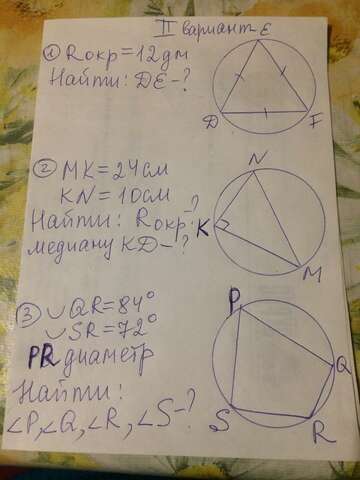 II вариант
① Rокр = 12 дм
Найти: DE - ?
E
D
F
② MK = 24 см
KN = 10 см
Найти: Rокр. - ?
медиану KD - ?
N
K
M
③ ◡QR = 84°
◡SR = 72°
PR диаметр
Найти:
∠P, ∠Q, ∠R, ∠S - ?
P
Q
S
R